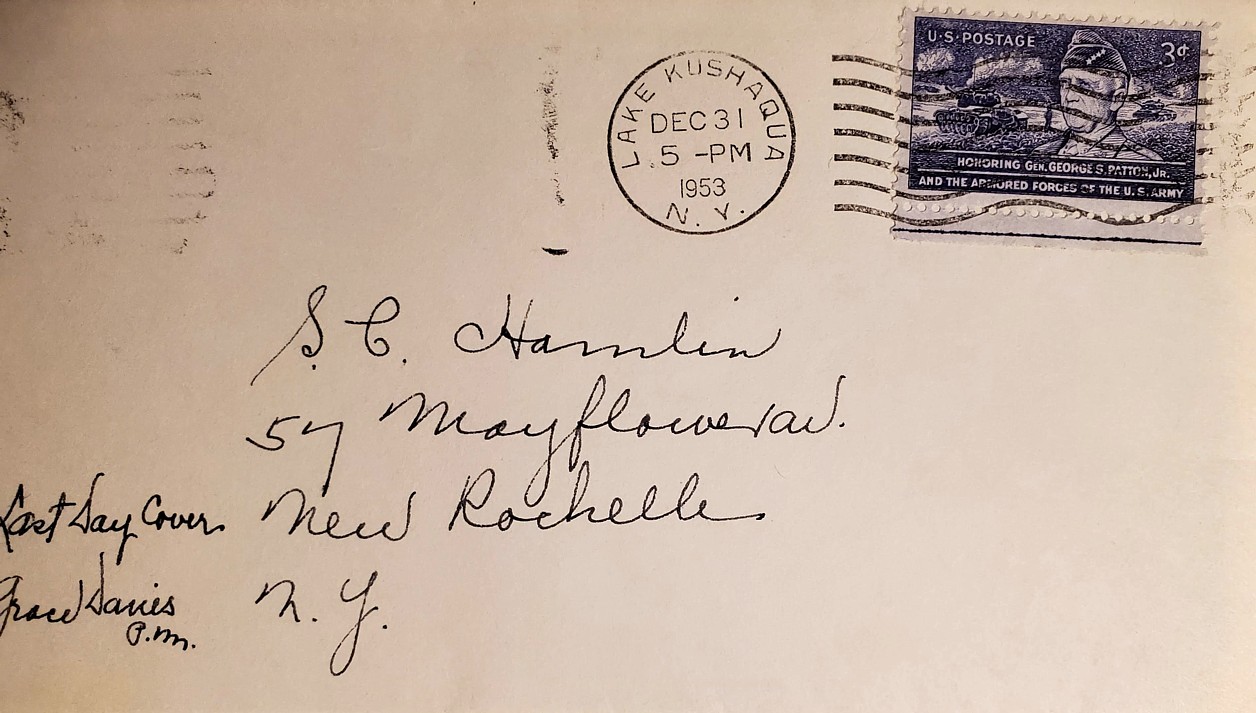 LAKE KUSHAQUA
DEC 31
5 -PM
1953
N. Y.
U·S·POSTAGE
3¢
HONORING GEN. GEORGE S. PATTON, JR.
AND THE ARMORED FORCES OF THE U. S. ARMY
S. C. Hamlin
57 Mayflower av.
New Rochelle
N. Y.
Last Day Cover.
Grace Davis
P.M.